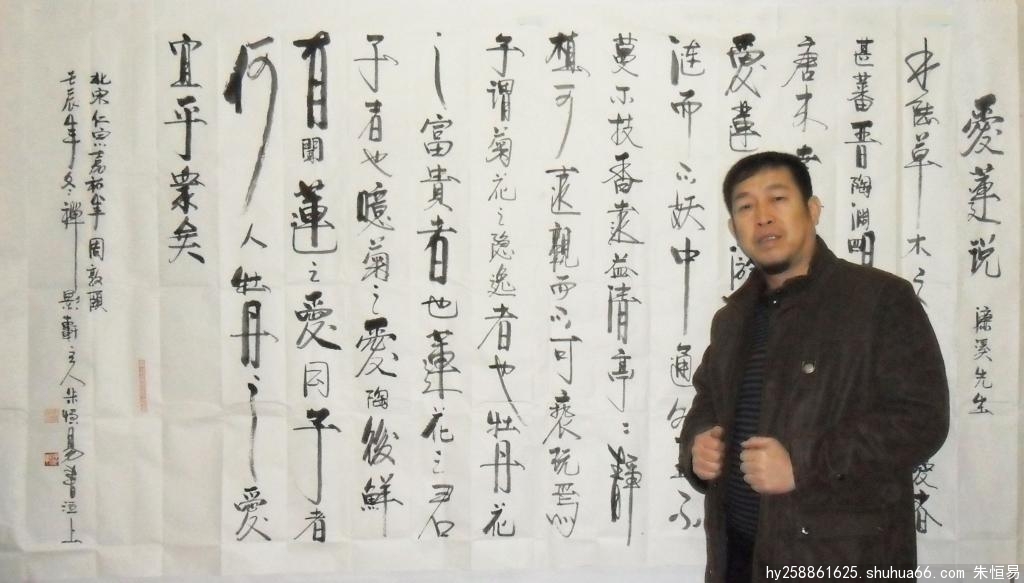 愛莲说 濂溪先生
水陸草木之愛者
甚蕃晋陶渊明
唐来
愛蓮
涟而不妖中通外直不
蔓不枝香遠益清亭亭
植可遠觀而不可亵玩焉
予謂菊花之隐逸者也牡丹花
之富貴者也蓮花之君
子者也噫菊之愛陶後鮮
有聞蓮之愛同予者
何人牡丹之愛
宜乎衆矣
北宋仁宗嘉祐年周敦頤
壬辰年冬禅影軒主人朱恒易書江上
hy258861625.shuhua66.com 朱恒易